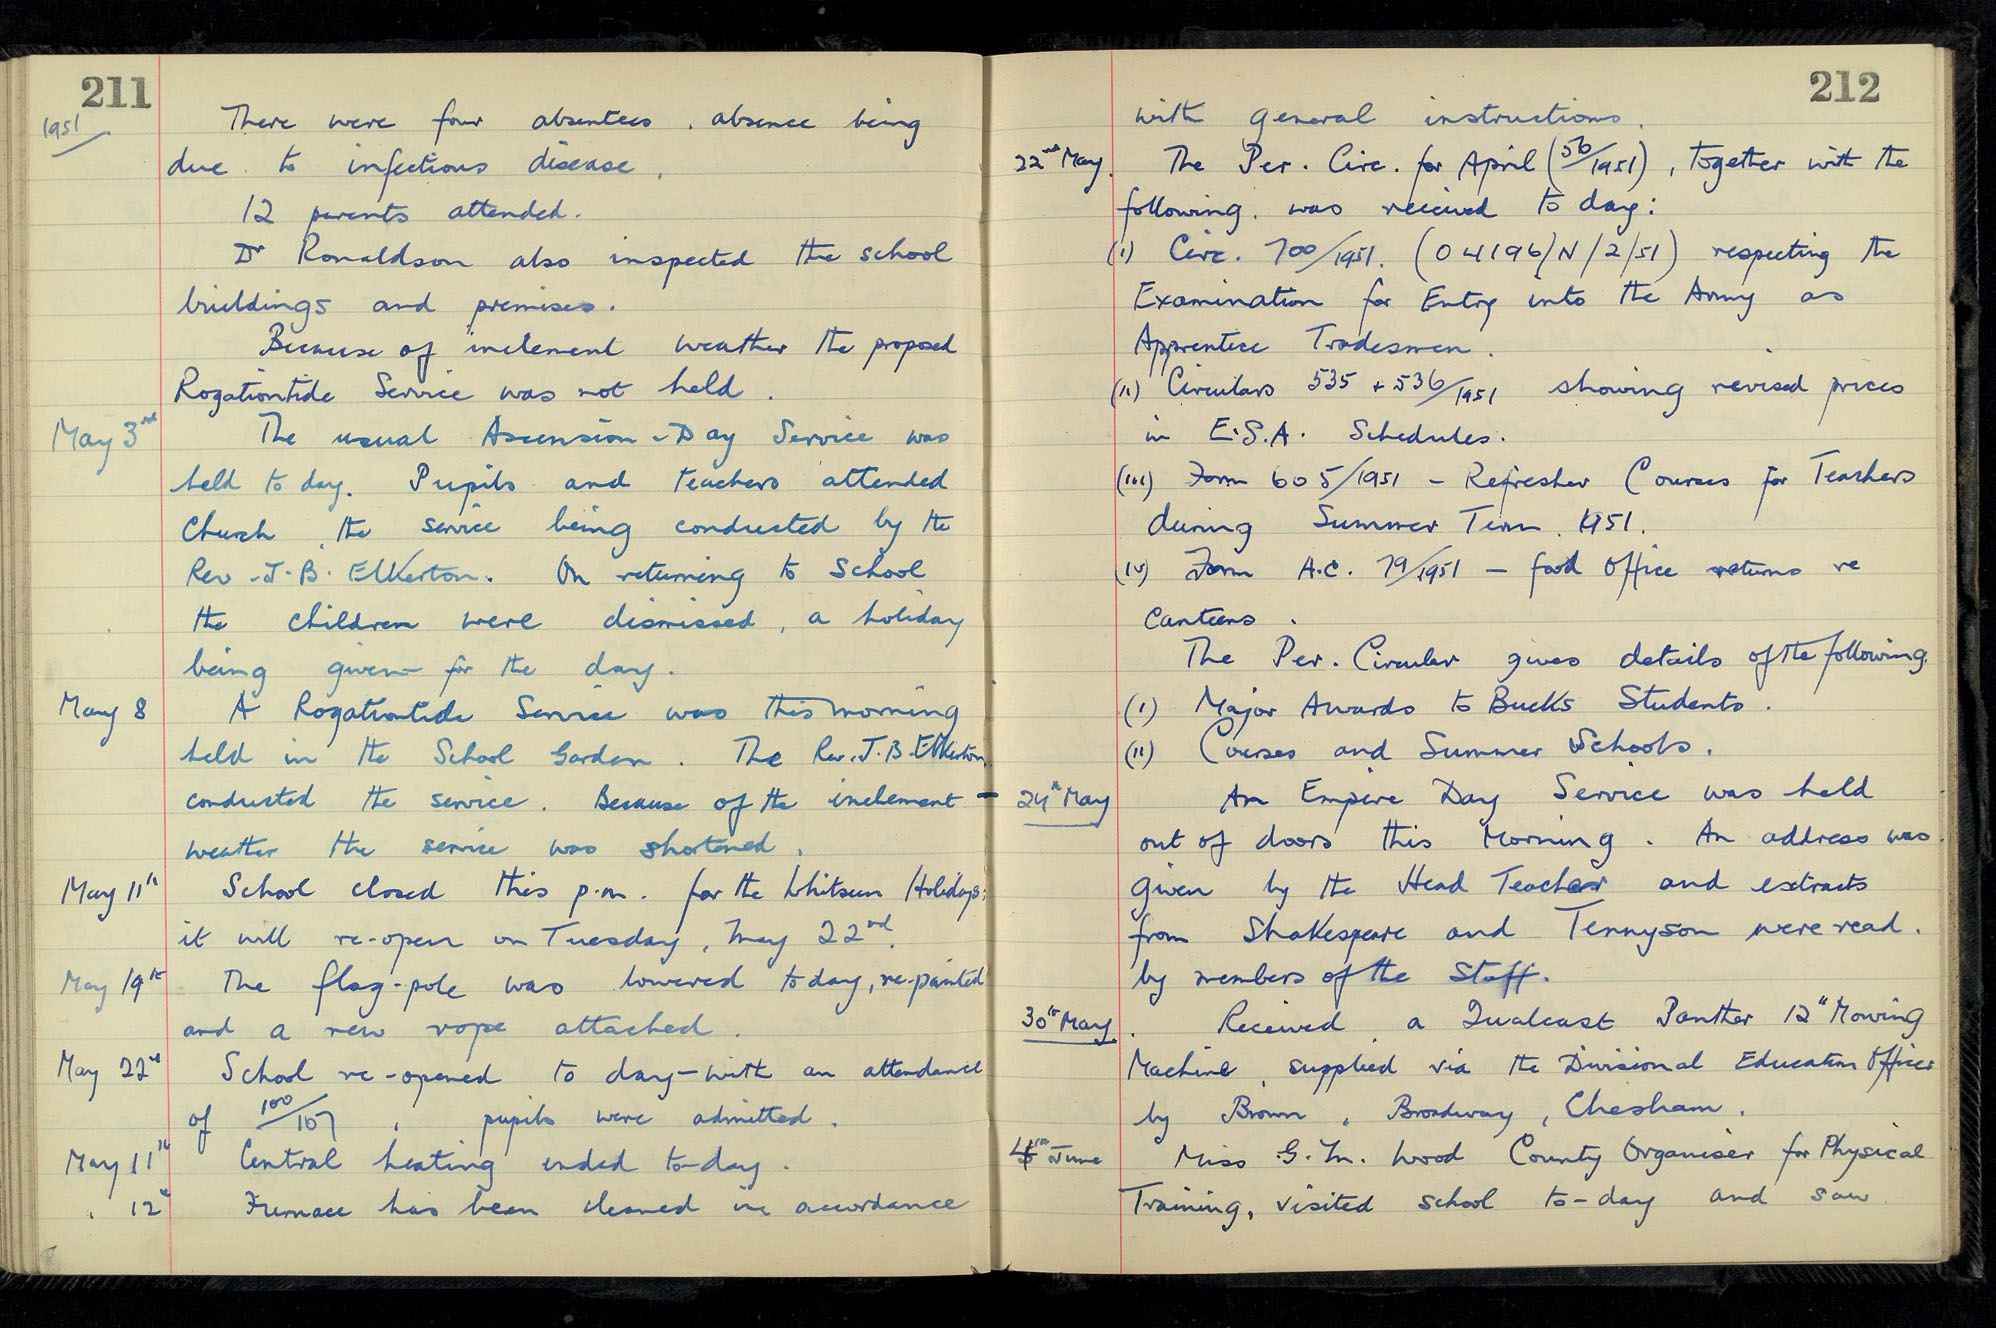 211
1951
There were four absentees, absence being
due to infectious disease.
12 parents attended.
Dr Ronaldson also inspected the school
buildings and premises.
Because of inclement weather the proposed
Rogationtide Service was not held.
May 3rd The usual Ascension-Day Service was
held to day. Pupils and teachers attended
Church, the service being conducted by the
Rev. J. B. Elkerton. On returning to School
the children were dismissed, a holiday
being given for the day.
May 8 A Rogationtide Service was this morning
held in the School Garden. The Rev. J. B. Elkerton
conducted the service. Because of the inclement
weather the service was shortened.
May 11th School closed this p.m. for the Whitsun Holidays;
it will re-open on Tuesday, May 22nd.
May 19th The flag-pole was lowered today, re-painted
and a new rope attached.
May 22nd School re-opened to day with an attendance
of 100/107, pupils were admitted.
May 11th Central heating ended to-day.
" 12th Furnace has been cleaned in accordance
212
with general instructions.
22nd May. The Per. Circ. for April (56/1951), together with the
following, was received to day:
(i) Circ. 700/1951. (04196/N/2/51) respecting the
Examination for Entry into the Army as
Apprentice Tradesmen.
(ii) Circulars 535 + 536/1951 showing revised prices
in E.S.A. Schedules.
(iii) Form 605/1951 - Refresher Courses for Teachers
during Summer Term, 1951.
(iv) Form A.C. 79/1951 - food office returns re
Canteens.
The Per. Circular gives details of the following.
(i) Major Awards to Bucks Students.
(ii) Courses and Summer Schools.
24th May An Empire Day Service was held
out of doors this Morning. An address was
given by the Head Teacher and extracts
from Shakespeare and Tennyson were read
by members of the Staff.
30th May. Received a Qualcast Panther 12" Mowing
Machine, supplied via the Divisional Education Officer
by Brown, Broadway, Chesham.
4th June Miss G. M. Wood County Organiser for Physical
Training, visited school to-day and saw